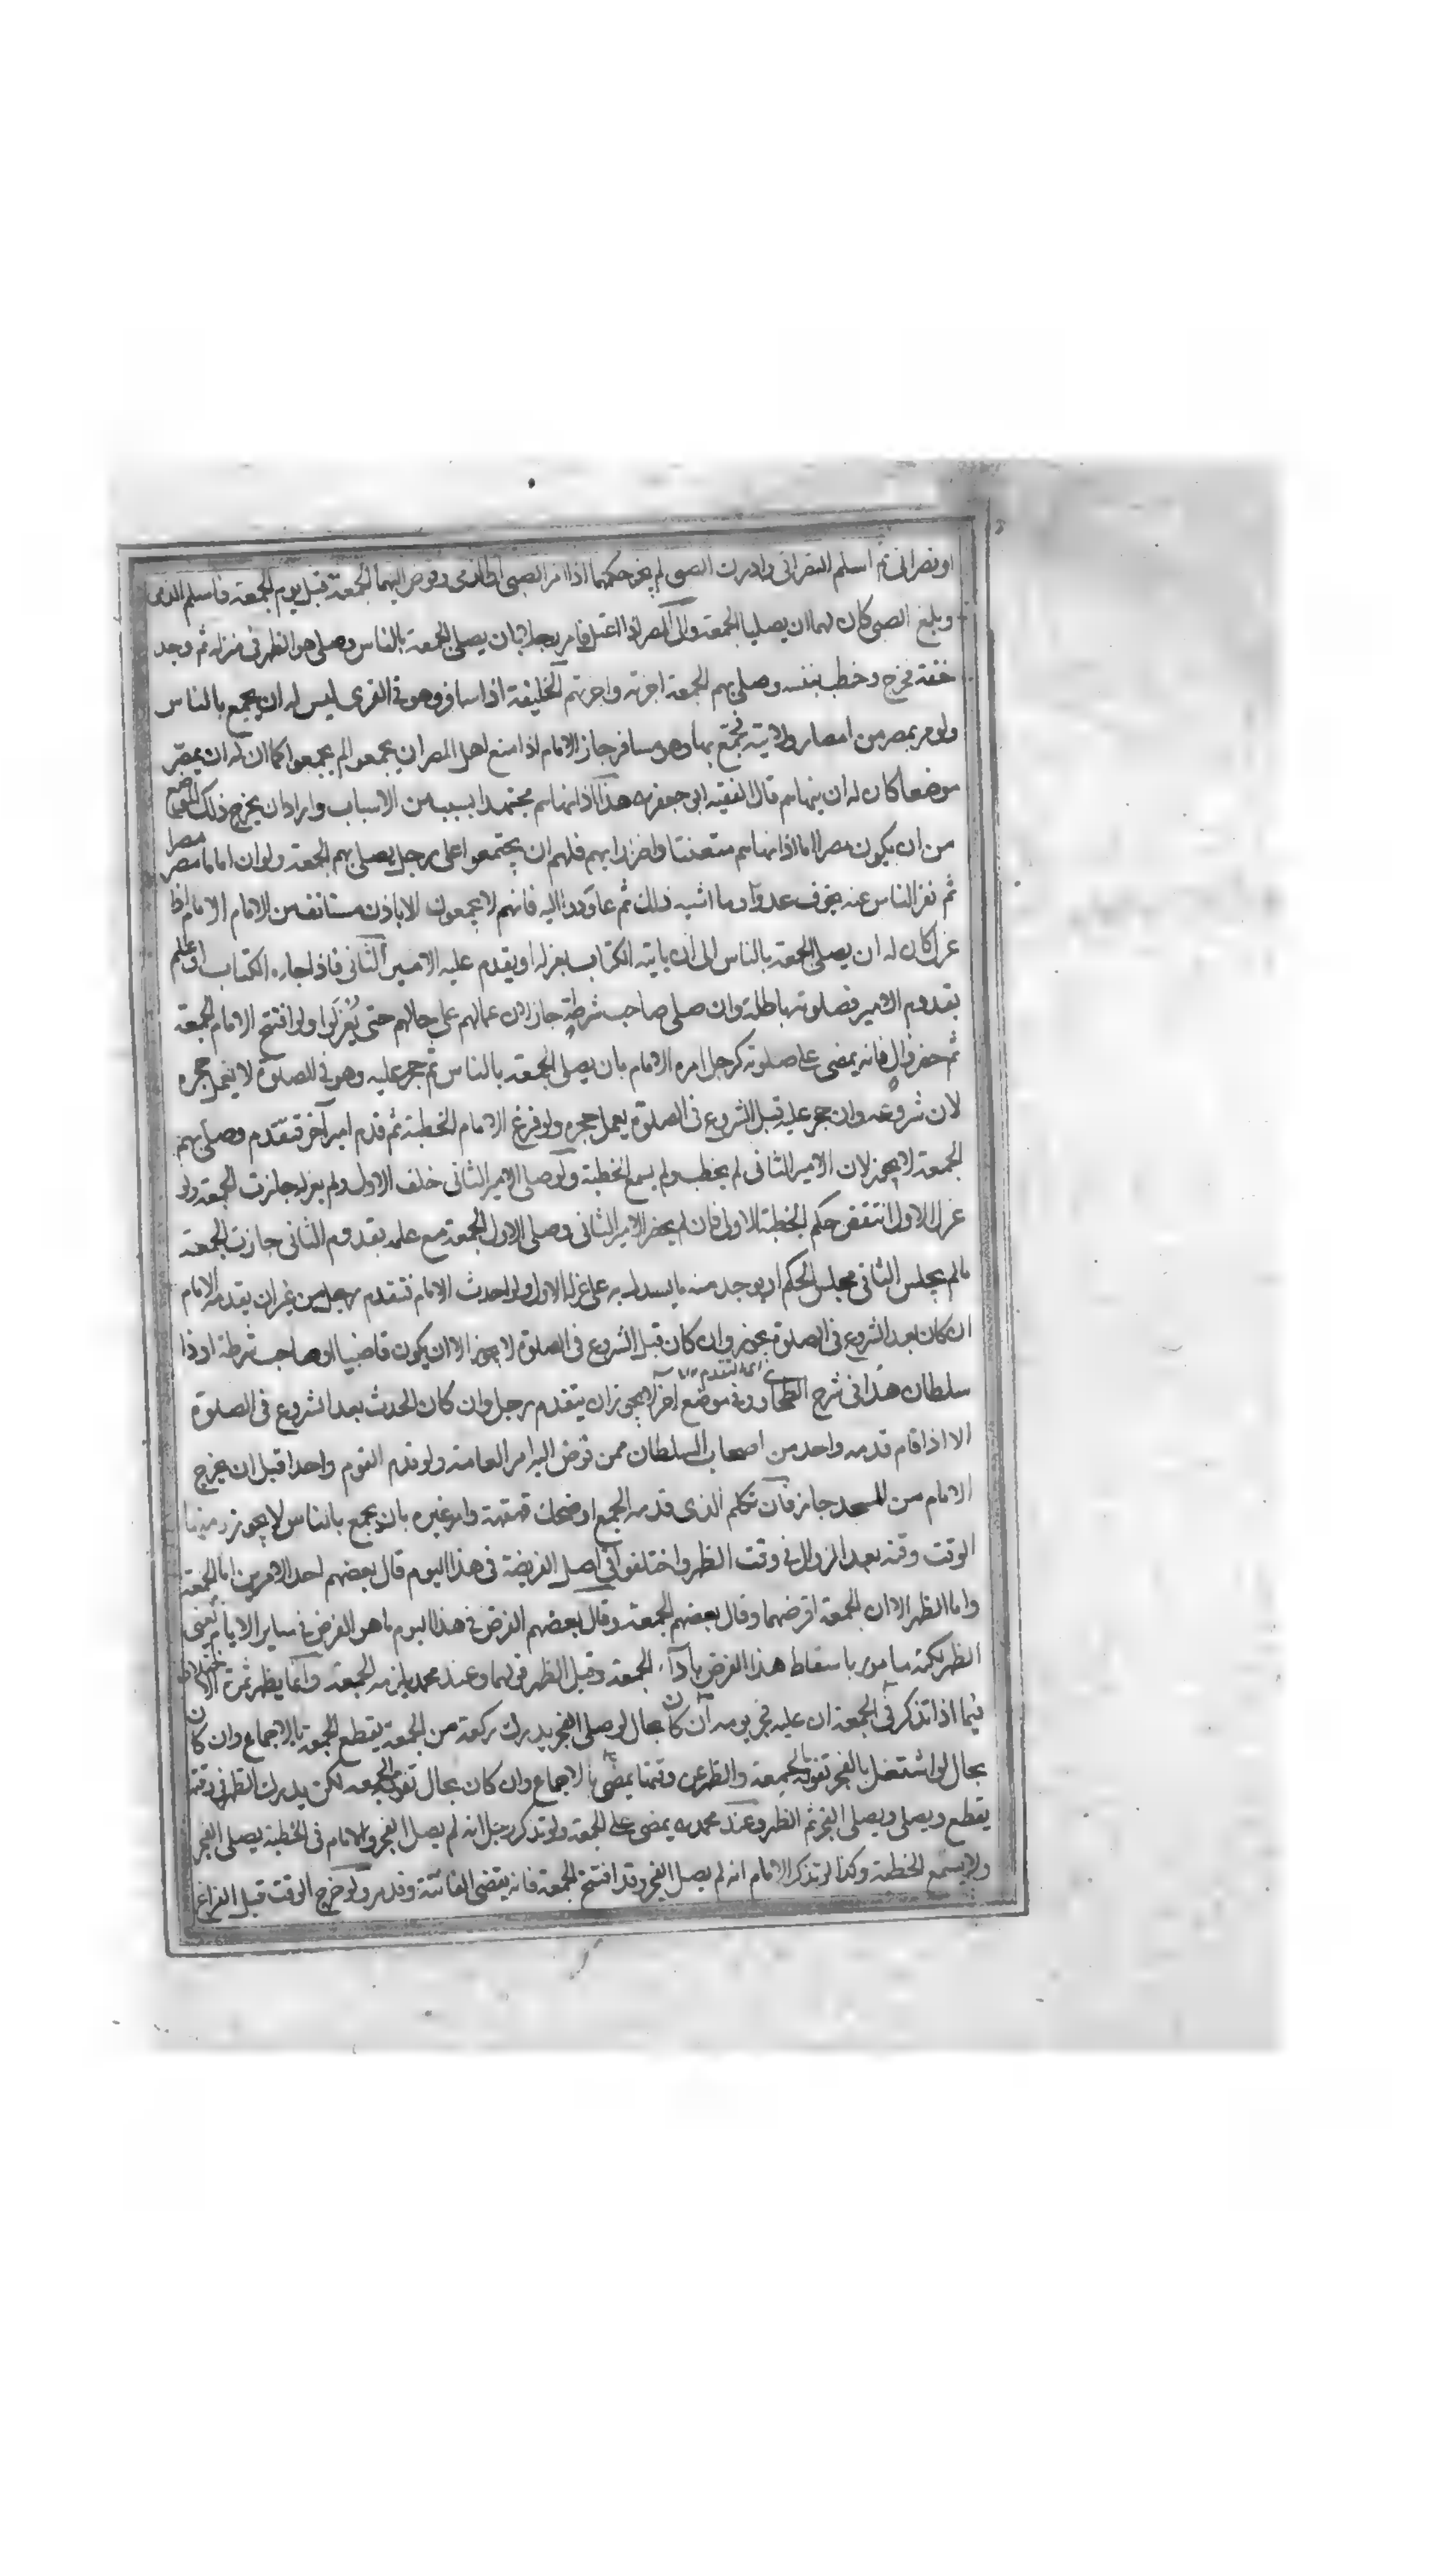 او نصرانى ثم اسلم النصرانى وادرك الصبى لم يجز حكمهما اذا امر الصبى او الذمى وفوض اليهما الجمعة قبل يوم الجمعة فاسلم الذمى
وبلغ الصبى كان لهما ان يصليا الجمعة والى المصر اذا اعتل فامر رجلا بان يصلى الجمعة بالناس وصلى هو الظهر فى منزله ثم وجد
خفة فخرج وخطب بنفسه وصلى بهم الجمعة اجزته واجزتهم الخليفة اذا سافر وهو فى القرى ليس له ان يجمع بالناس
ولو مر بمصر من امصار ولايته فجمع بها وهو مسافر جاز الامام اذا منع اهل المصر ان يجمعوا لم يجمعوا كما ان له ان يمصر
موضعا كان له ان ينهاهم قال الفقيه ابى جعفر ره هذا اذا نهاهم مجتهدا بسبب من الاسباب واراد ان يخرج ذلك الموضع
من ان يكون مصرا اما اذا نهاهم متعنتا واضرارا بهم فلهم ان يجتمعوا على رجل يصلى بهم الجمعة ولو ان اماما مصر مصرا
ثم نفر الناس عنه بخوف عدو او ما اشبه ذلك ثم عاودوا اليه فانهم لا يجمعون الا باذن مستانف من الامام الامام اذا
عزل كان له ان يصلى الجمعة بالناس الى ان ياتيه الكتاب بعزله او يقدم عليه الامير الثانى فاذا جاءه الكتاب او علم
بقدوم الامير فصلوته باطلة وان صلى صاحب شرطة جاز لان عمالهم على حالهم حتى يعزلوا ولو افتتح الامام الجمعة
ثم حضر وال فانه يمضى على صلوته كرجل امره الامام بان يصلى الجمعة بالناس ثم حجر عليه وهو فى الصلوة لا يعمل حجره
لان شروعه وان حجر عليه قبل الشروع فى الصلوة يعمل حجره ولو فرغ الامام الخطبة ثم قدم امير آخر فتقدم وصلى بهم
الجمعة لا يجوز لان الامير الثانى لم يخطب ولم يسمع الخطبة ولو صلى الامير الثانى خلف الاول ولم يعزله جازت الجمعة ولو
عزل الاول انتقض حكم الخطبة الاولى فان لم يحضر الامير الثانى وصلى الاول الجمعة مع علمه بقدوم الثانى جازت الجمعة
مالم يجلس الثانى مجلس الحكم او يوجد منه ما يستدل به على عزل الاول ولو احدث الامام فتقدم رجل من غير ان يقدمه الامام
ان كان بعد الشروع فى الصلوة يجوز وان كان قبل الشروع فى الصلوة لا يجوز الا ان يكون قاضيا او صاحب شرطة او ذا
سلطان هذا فى شرح الطحاوى وفى موضع اخر لا يجوز ان يتقدم رجل وان كان الحدث بعد الشروع فى الصلوة
الا اذا قام قدمه واحد من اصحاب السلطان ممن فوض اليه امر العامة ولو قدم القوم واحدا قبل ان يخرج
الامام من المسجد جاز فان تكلم الذى قدمه الجمع او ضحك قهقهة وامر غيره بان يجمع بالناس لا يجوز ومنها
الوقت وقته بعد الزوال فى وقت الظهر واختلفوا فى اصل الفريضة فى هذا اليوم قال بعضهم احد الامرين اما الجمعة
واما الظهر الا ان الجمعة افرضهما وقال بعضهم الجمعة وقال بعضهم الفرض فى هذا اليوم ما هو الفرض فى ساير الايام يعنى
الظهر لكنه مامور باسقاط هذا الفرض باداء الجمعة وقيل الظهر قولهما وعند محمد يلزمه الجمعة وانما يظهر ثمرة الاختلاف
فيما اذا تذكر فى الجمعة ان عليه فجر يومه ان كان بحال لو صلى الفجر يدرك ركعة من الجمعة يقطع الجمعة بالاجماع وان كان
بحال لو اشتغل بالفجر تفوته الجمعة والظهر عن وقتها يمضى بالاجماع وان كان بحال تفوته الجمعة لكن يدرك الظهر فى وقته
يقطع ويصلى ويصلى الفجر ثم الظهر وعند محمد ره يمضى على الجمعة ولو تذكر رجل انه لم يصل الفجر والامام فى الخطبة يصلى الفجر
ولا يسمع الخطبة وكذا لو تذكر الامام انه لم يصل الفجر وقد افتتح الجمعة فانه يقضى الفائتة وقد مر ولو خرج الوقت قبل الفراغ